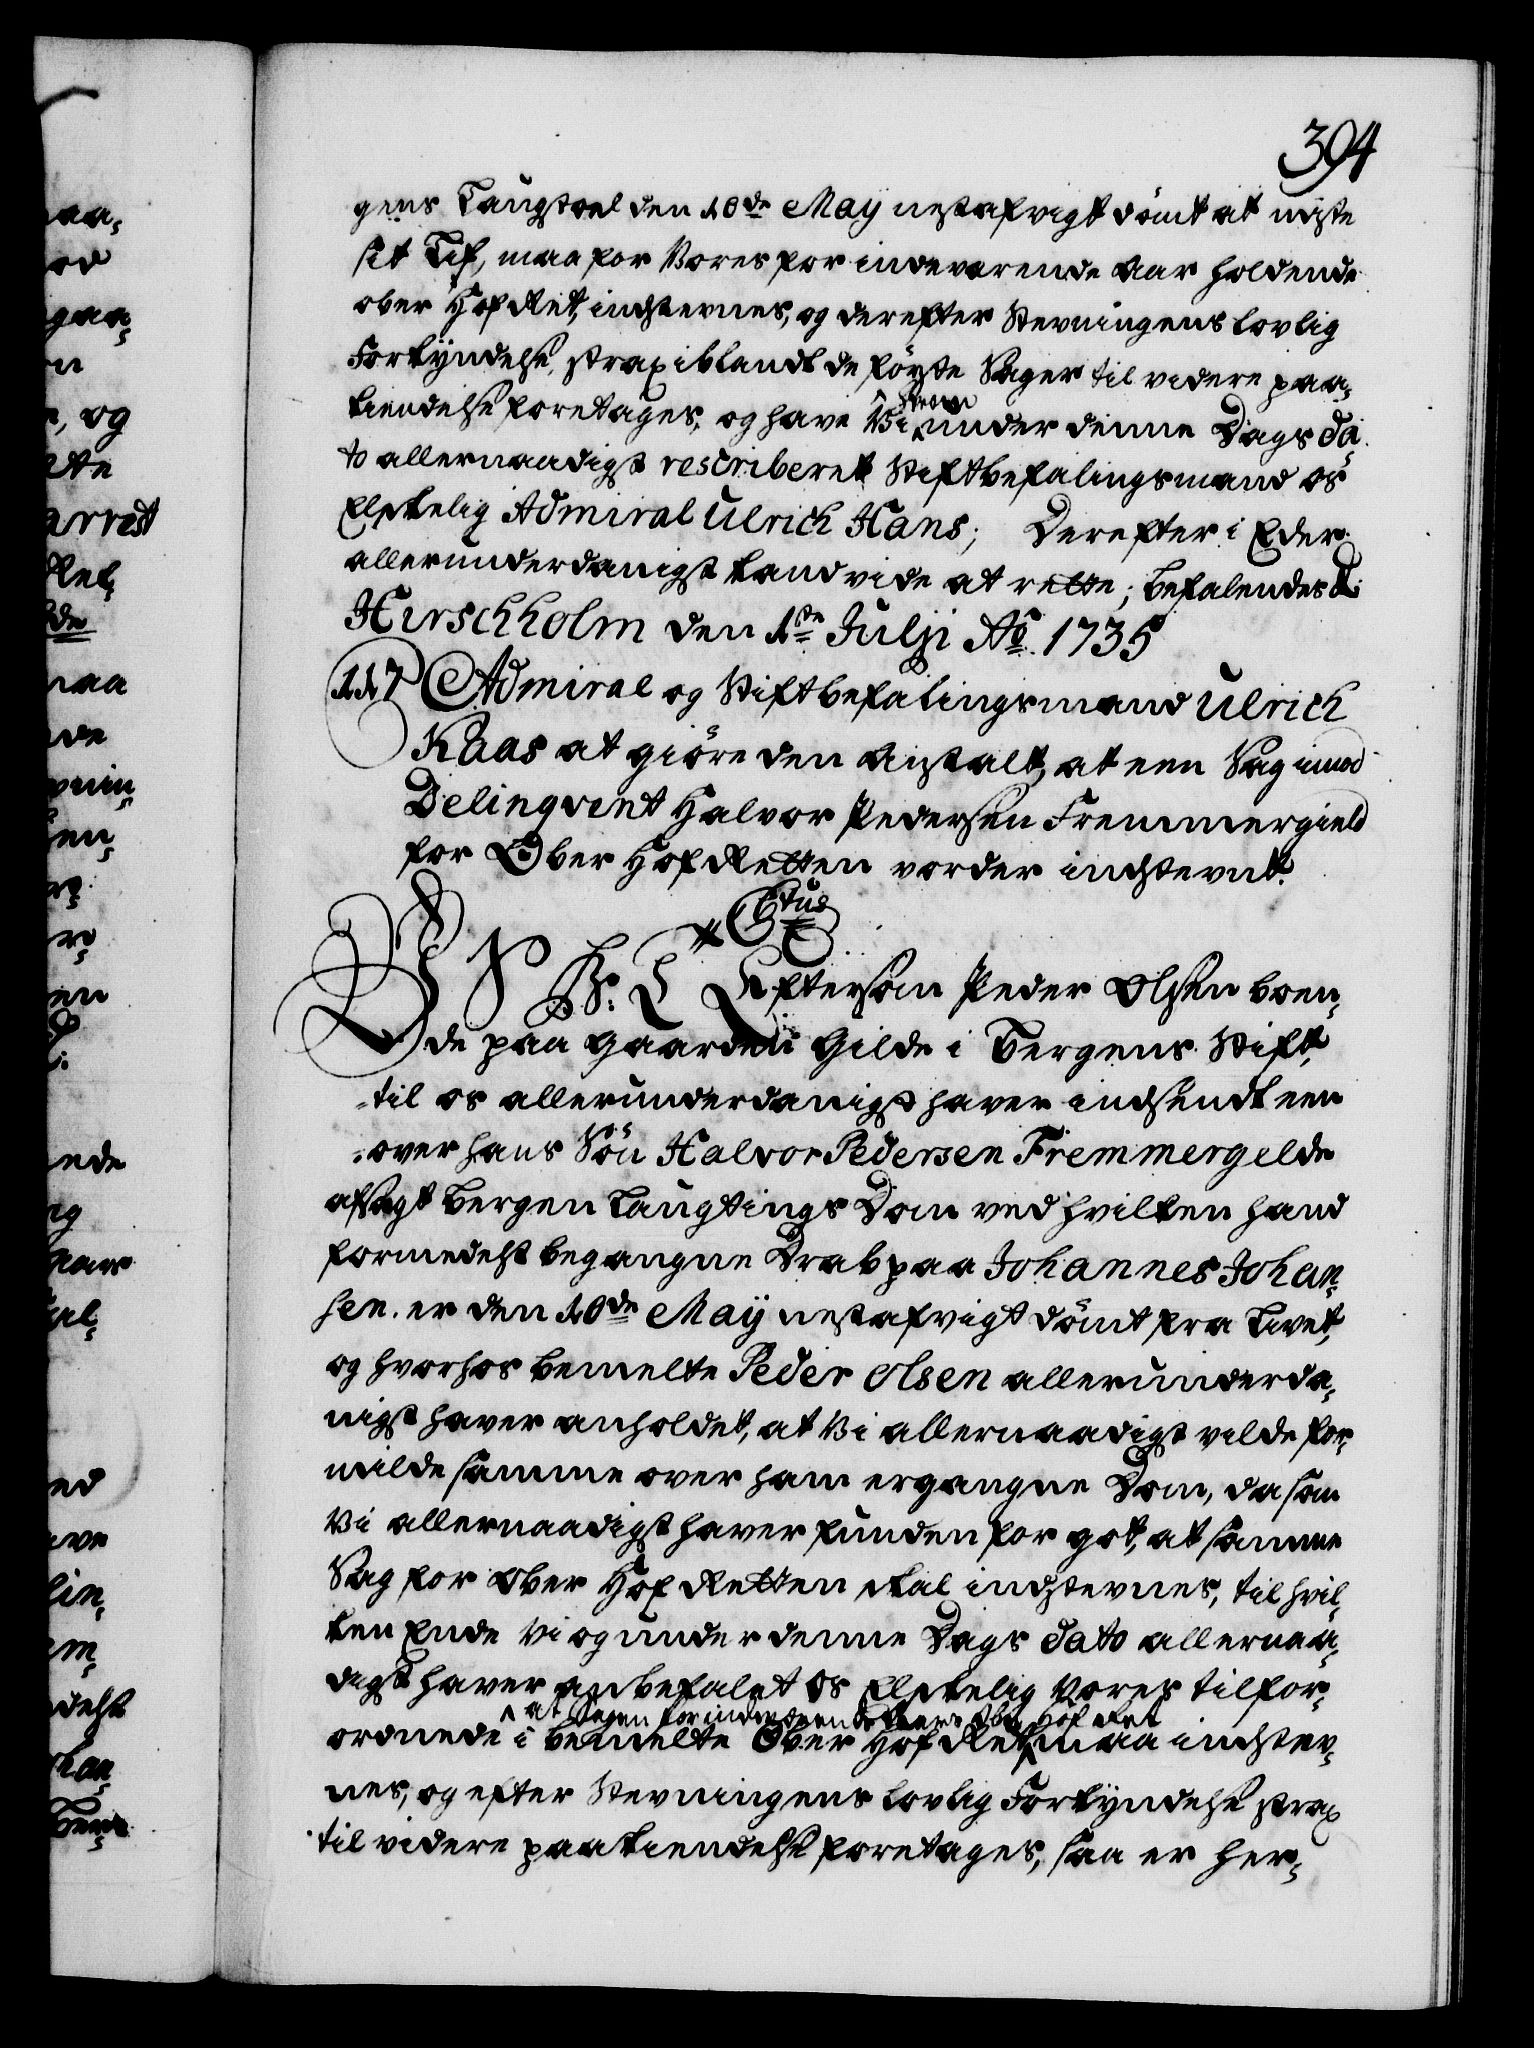 394
gens Laugstoel den 10de Maÿ nestafvigt dömt at miste
sit Lif, maa for Vores for indeværende Aar holdende
over Hof Ret, indstevnes, og derefter Stevningens lovlig
Forkÿndelse, strax iblandt de föyste Sager til videre paa-
kiendelse foretages, og have Vi under denne Dags da-
to allernaadigst rescriberet Stiftbefalingsmand os
Elskelig Admiral Ulrich Kaas; Derefter i Eder
allerunderdanigst kand vide at rette; befalendes d:
Hirschholm den 1ste Julji Aõ 1735
117 Admiral og Stiftbefalingsmand Ulrich
Kaas at giöre den Anstalt, at een Sag imod
Delinqvent Halvor Pedersen Fremmergield
for Ober Hof Retten vorder indstevnt.
C 6tus
V S G: T Eftersom Peder Olsen boen-
de paa Gaarden Gilde i Bergens Stift,
til os allerunderdanigst haver indsendt een
over hans Sön Halvor Pedersen Fremmergilde
afsagt Bergen Laugtings Dom ved hvilken hand
formedelst begangne Drab paa Johannes Johan-
sen. er den 10de Maÿ nestafvigt dömt fra Livet,
og hvorhos bemelte Peder Olsen allerunderda-
nigst haver anholdet, at Vi allernaadigst vilde for-
milde samme over ham ergangne Dom, da som
Vi allernaadigst haver funden for got, at samme
Sag for Ober Hof Retten skal indstevnes, til hvil-
ken Ende Vi og under denne Dags dato allernaa-
digst haver anbefalet Os Elskelig Vores tilfor-
at Sagen for indeværende Aars Ober Hof Ret
ordnede i bemelte Ober Hof Ret, maa indstev-
nes, og efter Stevningens lovlig Forkÿndelse strax
til videre paakiendelse foretages, saa er her-